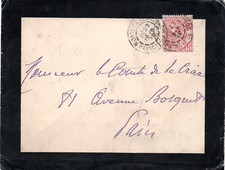 Monsieur le Comte de la
81 Avenue Bosquet
Paris